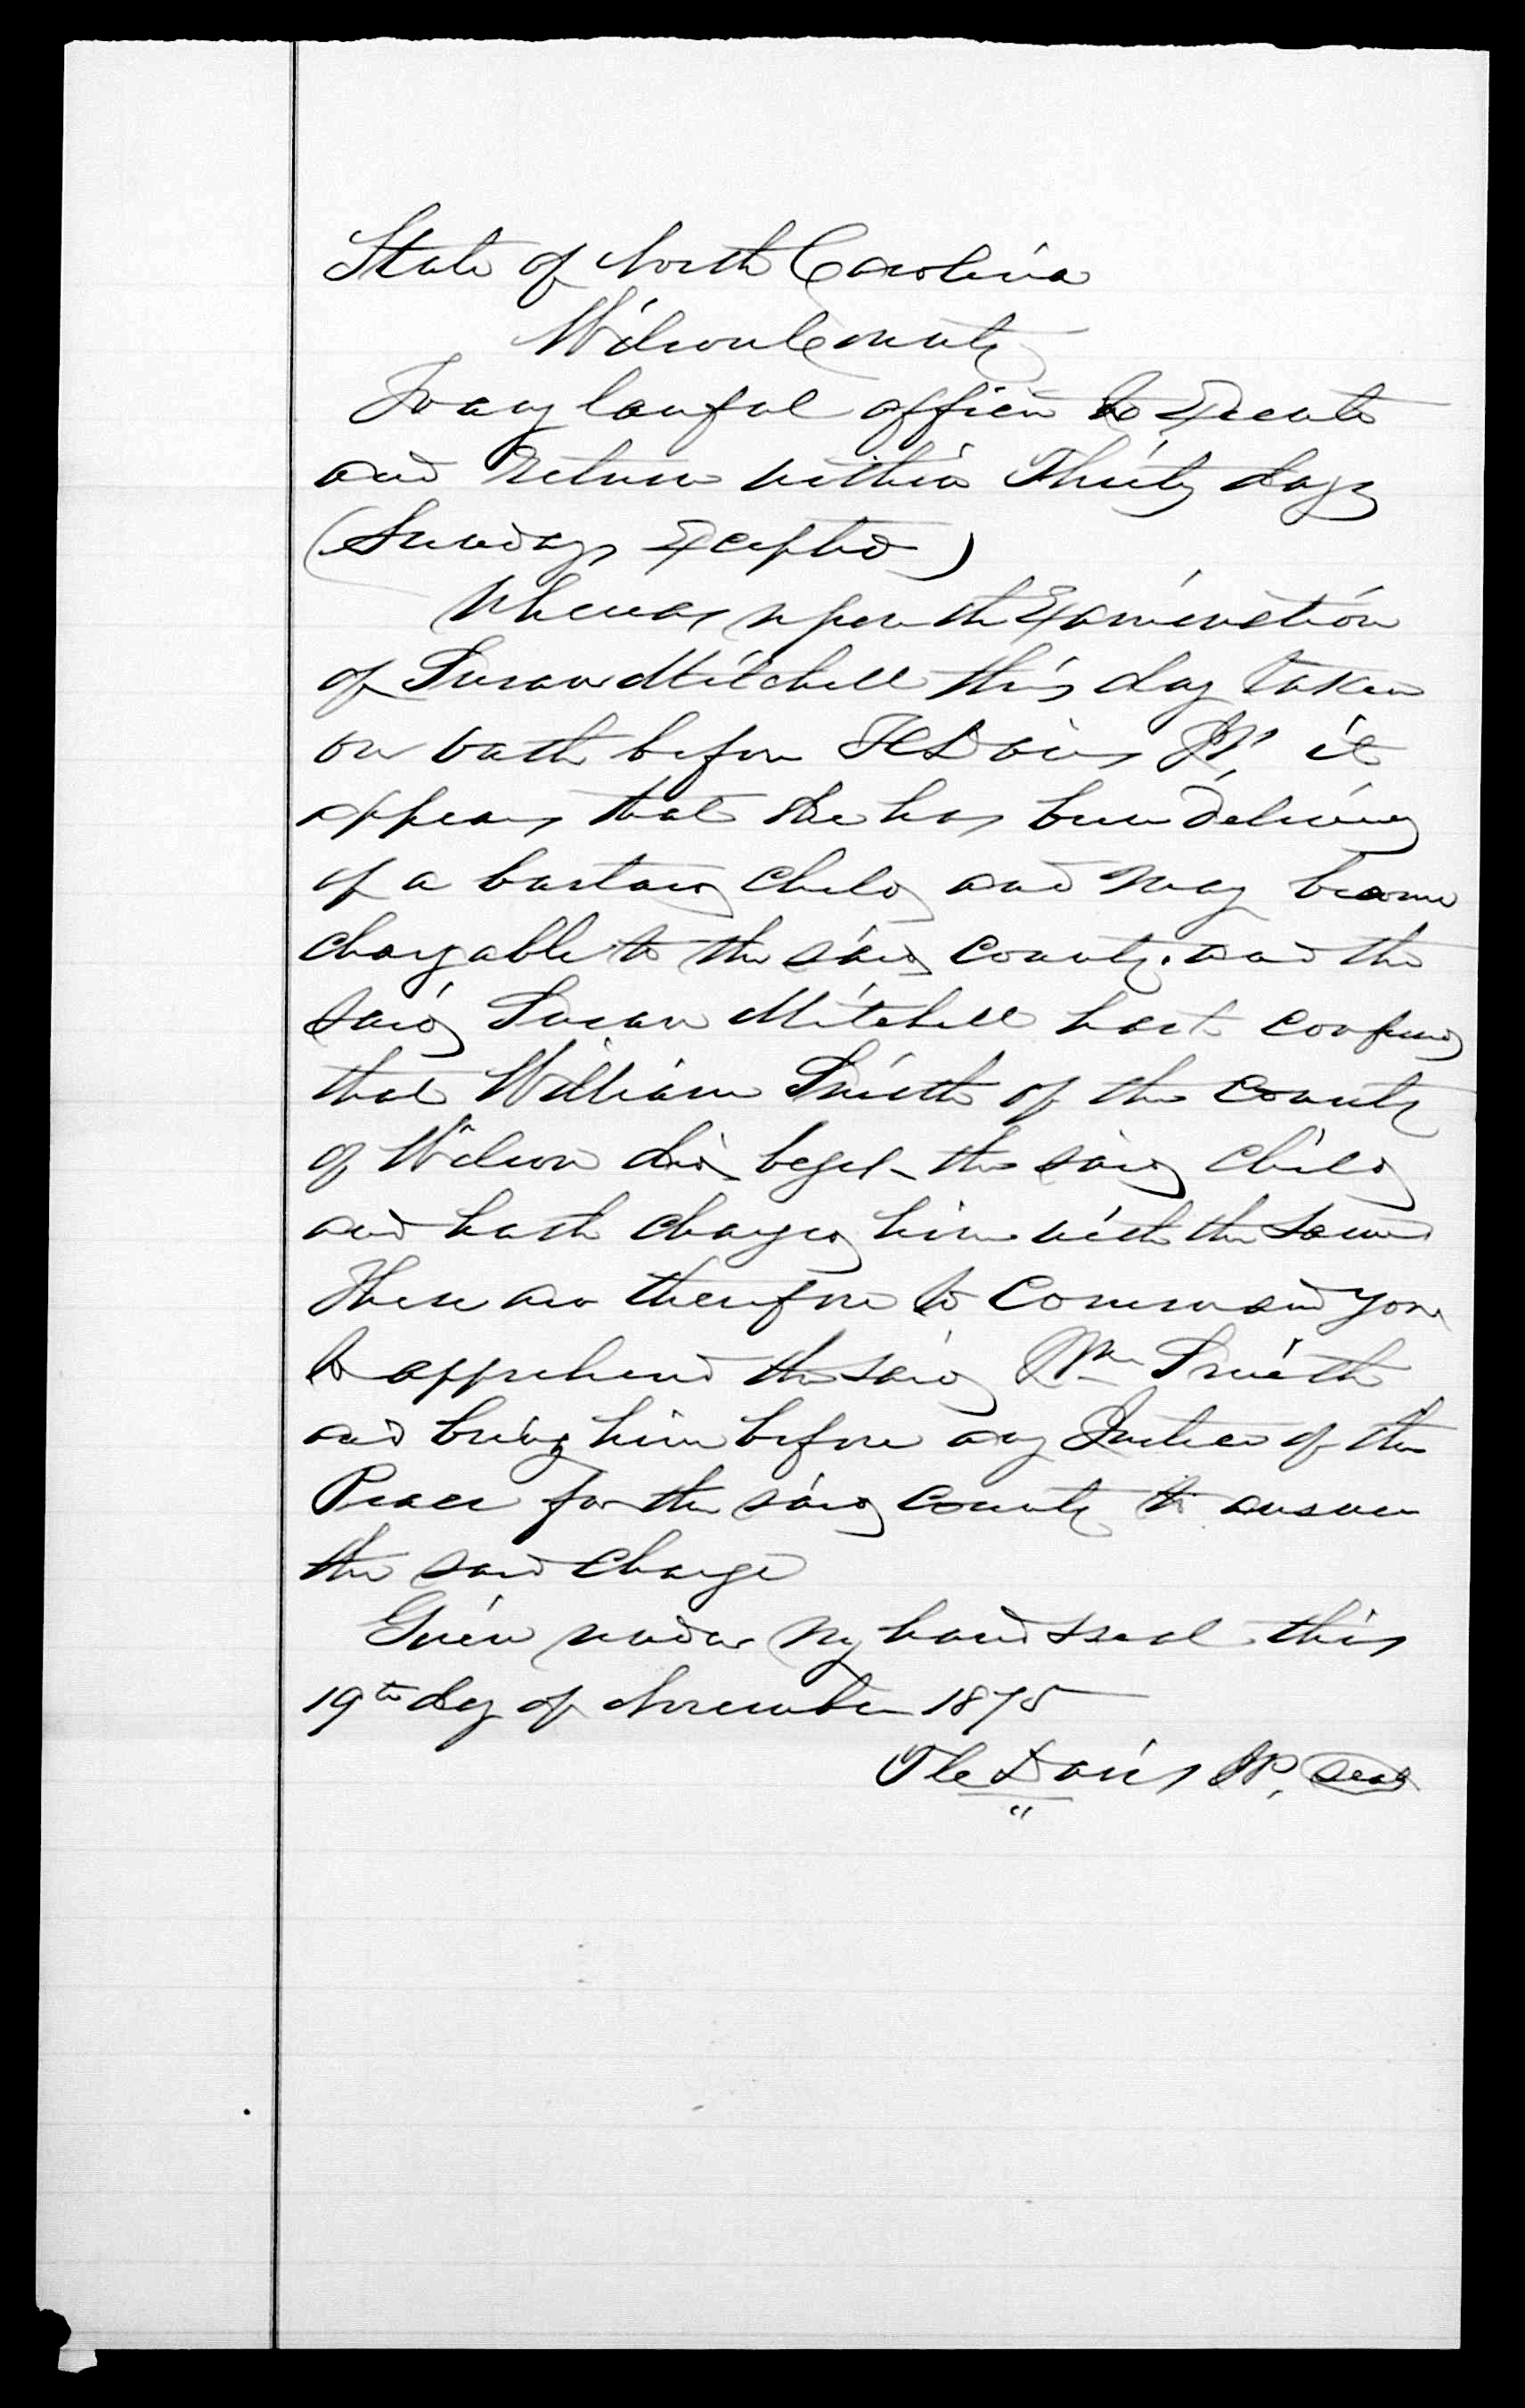 State of North Carolina
Wilson County
To any lawful officer to Execute
and Return within Thirty days
(Sundays Excepted)
Whereas upon the Examination
of Susan Mitchell this day taken
on oath before T C Davis JP, it
appears that she has been delivered
of a bastard child and may become
chargable to the said county. and the
said Susan Mitchell hast confessed
that William Smith of the County
of Wilson did beget the said child
and hath charged him with the same
These are therefore to Command you
to apprehend the said Wm Smith
and bring him before any Justice of the
Peace for the said county to answer
the said charge
Given under my hand & seal this
19th day of November 1875
T C Davis JP, Seal